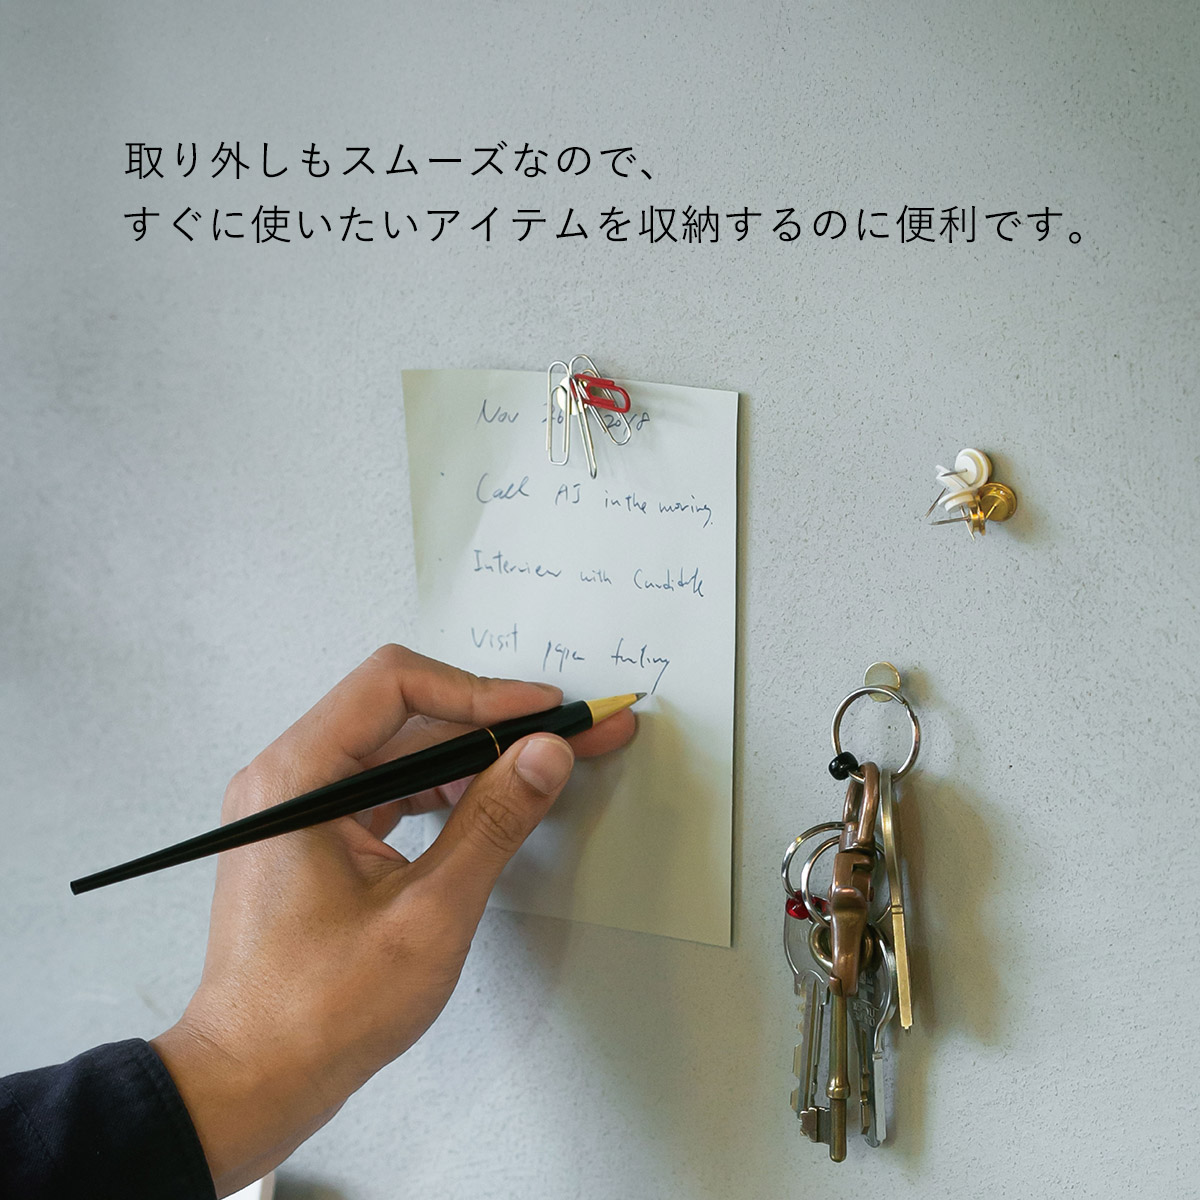 取り外しもスムーズなので、
すぐに使いたいアイテムを収納するのに便利です。
Nov 2018
Call AJ in the moring.
Interview with Candidate
Visit paper